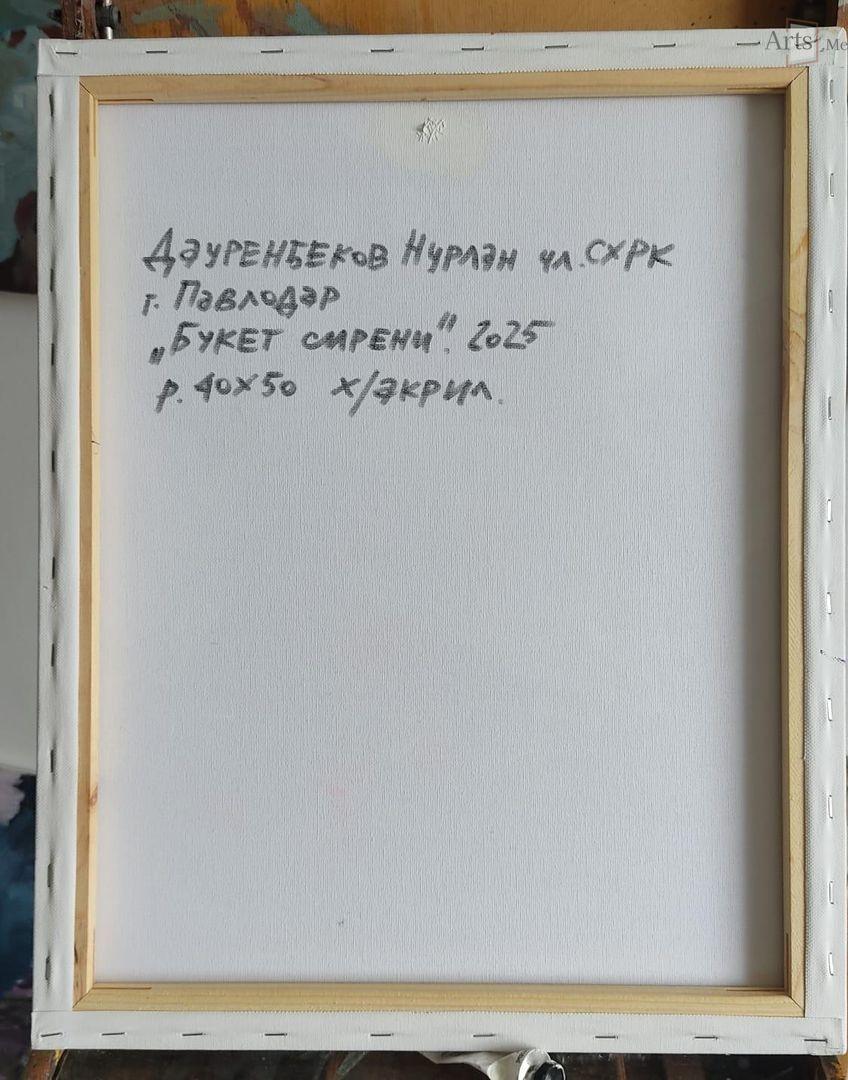 Arts.Me
Дәуренбеков Нурлан чл. СХРК
г. Павлодар
„Букет сирени". 2025
р. 40х50 х/акрил.